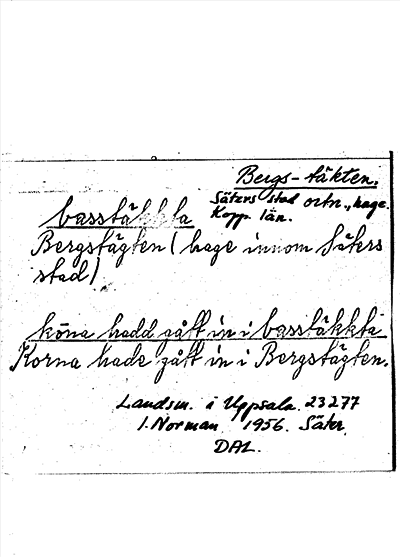 Bergs-täkten.
Säters stad ortn., hage.
Kopp. län.
basstäkkta
Bergstägten (hage innom Säters
stad)
kōna hadd gått in i basstäkkta
Korna hade gått in i Bergstägten.
Landsm. i Uppsala. 23277
I. Norman. 1956. Säter.
DAL.